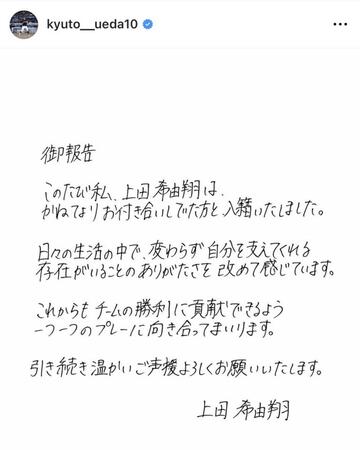 kyuto__ueda10
御報告
このたび私、上田希由翔は、
かねてよりお付き合いしてた方と入籍いたしました。
日々の生活の中で、変わらず自分を支えてくれる
存在がいることのありがたさを改めて感じています。
これからもチームの勝利に貢献できるよう
一つ一つのプレーに向き合ってまいります。
引き続き温かいご声援よろしくお願いいたします。
上田 希由翔